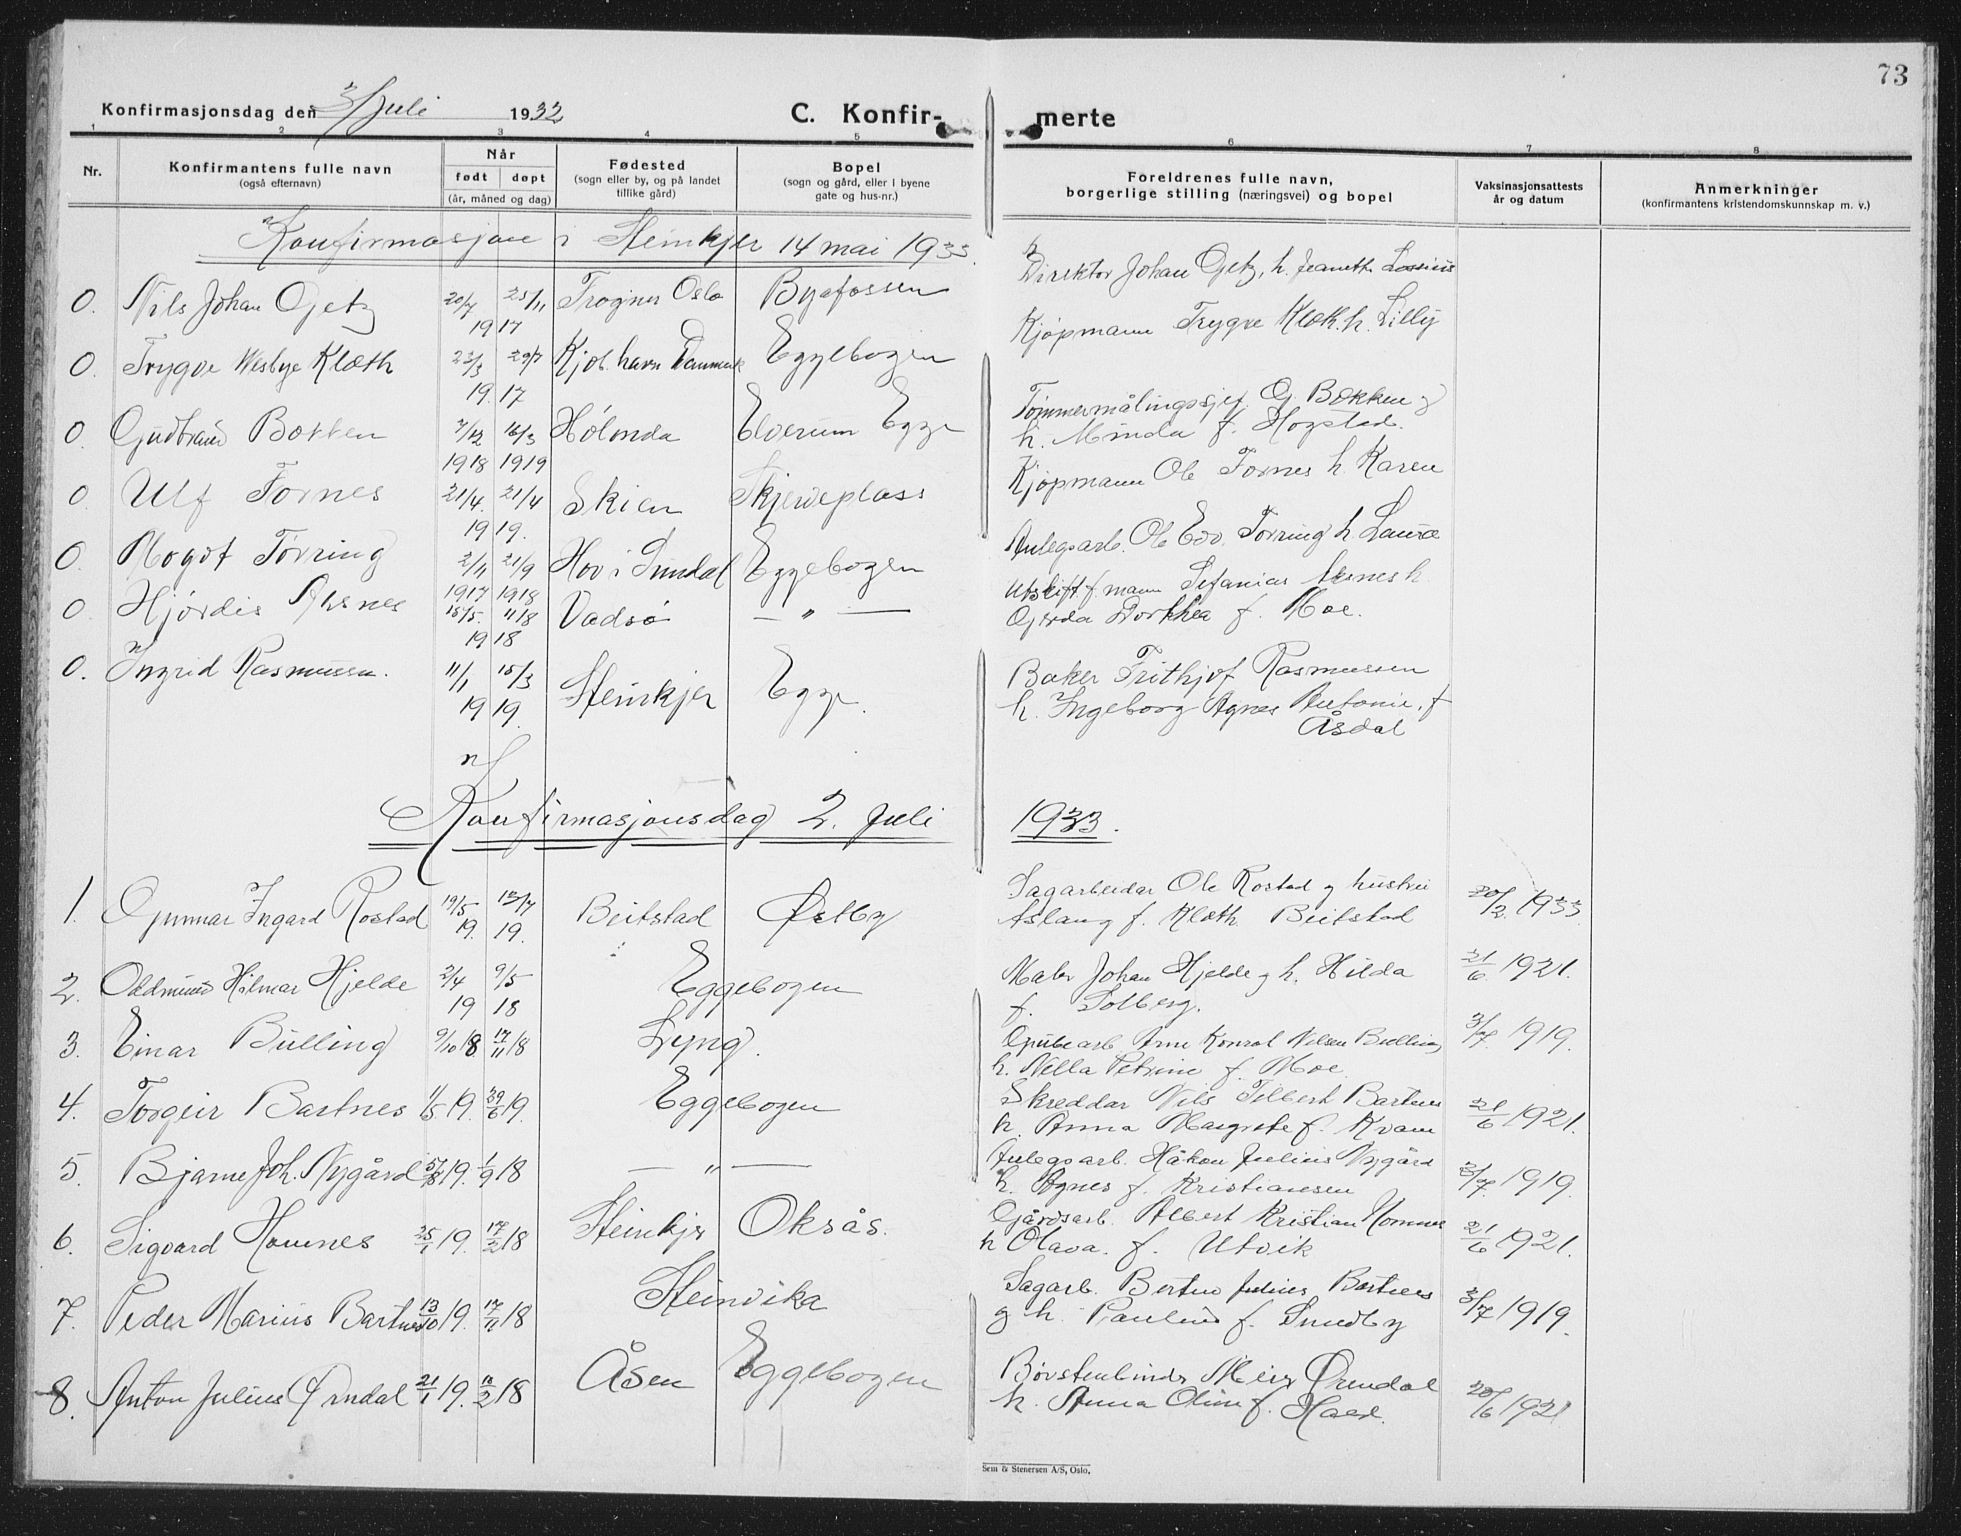 73
Konfirmasjonsdag den 3 Juli 1932 C. Konfir- merte
1 2 3 4 5 6 7 8
Nr. Konfirmantens fulle navn (også efternavn) Når født døpt (år, måned og dag) Fødested (sogn eller by, og på landet tillike gård) Bopel (sogn og gård, eller i byene gate og hus-nr.) Foreldrenes fulle navn, borgerlige stilling (næringsvei) og bopel Vaksinasjonsattests år og datum Anmerkninger (konfirmantens kristendomskunnskap m. v.)
Konfirmasjon i Steinkjer 14 mai 1933.
0. Nils Johan Getz 20/7 25/11 1917 Frogner Oslo Byafossen Direktør Johan Getz, h. Jeanette Lossius
0. Trygve Wesbye Klæth 23/3 29/7 1917 Kjøb.havn Danmark Eggebogen Kjøpmann Trygve Klæth. h. Lilly
0. Gudbrand Bækken 7/12 16/3 1918 1919 Hølonda Elverum Egge Tømmermålingssjef G. Bækken og
h. Minda f. Hogstad.
0. Ulf Fornes 21/4. 21/4 1919. Skien Skjerveplass Kjøpmann Ole Fornes h. Karen
0. Magot Tørring 2/11 21/9 1917 1918 Hov i Sundal Eggebogen Anlegsarb. Ole Edv. Tørring h. Laura
0. Hjørdis Aksnes 15/5. 11/8 1918 Vadsø — " — Utskift.f.mann Sefanias Aksnes h.
Gjerda Dorthea f. Moe.
0. Ingrid Rasmussen. 11/1 15/3 1919. Steinkjer Egge. Baker Frithjof Rasmussen
h. Ingeborg Agnes Antonie, f
Åsdal
Konfirmasjonsdag 2. Juli 1933.
1. Gunnar Ingard Rostad 19/5 13/7 19. 19. Beitstad Østby Sagarbeidar Ole Rostad og hustru
Aslaug f. Klæth Beitstad 20/2. 1933
2. Oddmund Hilmar Hjelde 2/4 9/5 19 18 Eggebogen Maler Johan Hjelde og h. Hilda
f. Solberg. 21/6 1921.
3. Einar Bülling 9/10 18 17/11 18 Lyng. Grubearb Arne Konrad Nilsen Bulling
h. Nella Petrine f. Moe 3/7 1919.
4. Torgeir Bartnes 1/5 19. 29/6 19. Eggebogen Skreddar Nils Tilbert Bartnes
h. Anna Margrete f. Kvam 21/6 1921.
5. Bjarne Joh. Nygård 5/8 19. 1/9 18 — " — Anlegsarb. Håkon Julius Nygård
h. Agnes f. Kristiansen 3/7 1919.
6. Sigvard Homnes 25/1 19. 17/2 18 Steinkjer Oksås. Gårdsarb. Albert Kristian Homnes
h Olava. f. Utvik 21/6 1921.
7. Peder Marius Bartnes 13/10 19. 17/11 18 Steinvika Sagarb. Bertin Julius Bartnes
og h. Pauline f. Sundby 3/7 1919.
8. Anton Julius Ørndal 21/1 19. 11/2 18 Åsen Eggebogen Børstenbinder Meier Ørndal
h. Anna Oline f. 20/6 1921
Sem & Stenersen A/S, Oslo.